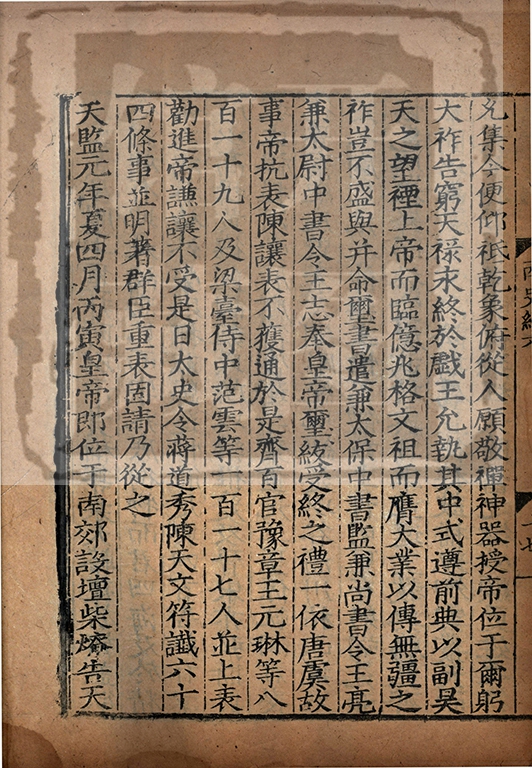 兆集今便仰祗乾象俯從人願敬禪神器授帝位于爾躬
大祚告窮天禄永終於戲王允執其中式遵前典以副昊
天之望禋上帝而臨億兆格文祖而膺大業以傳無疆之
祚豈不盛與并命璽書遣兼太保中書監兼尚書令王亮
兼太尉中書令王志奉皇帝璽紱受終之禮一依唐虞故
事帝抗表陳讓表不獲通於是齊百官豫章王元琳等八
百一十九人及梁臺侍中范雲等一百一十七人並上表
勸進帝謙讓不受是日太史令蔣道秀陳天文符讖六十
四條事並明著群臣重表固請乃從之
天監元年夏四月丙寅皇帝即位于南郊設壇柴燎告天